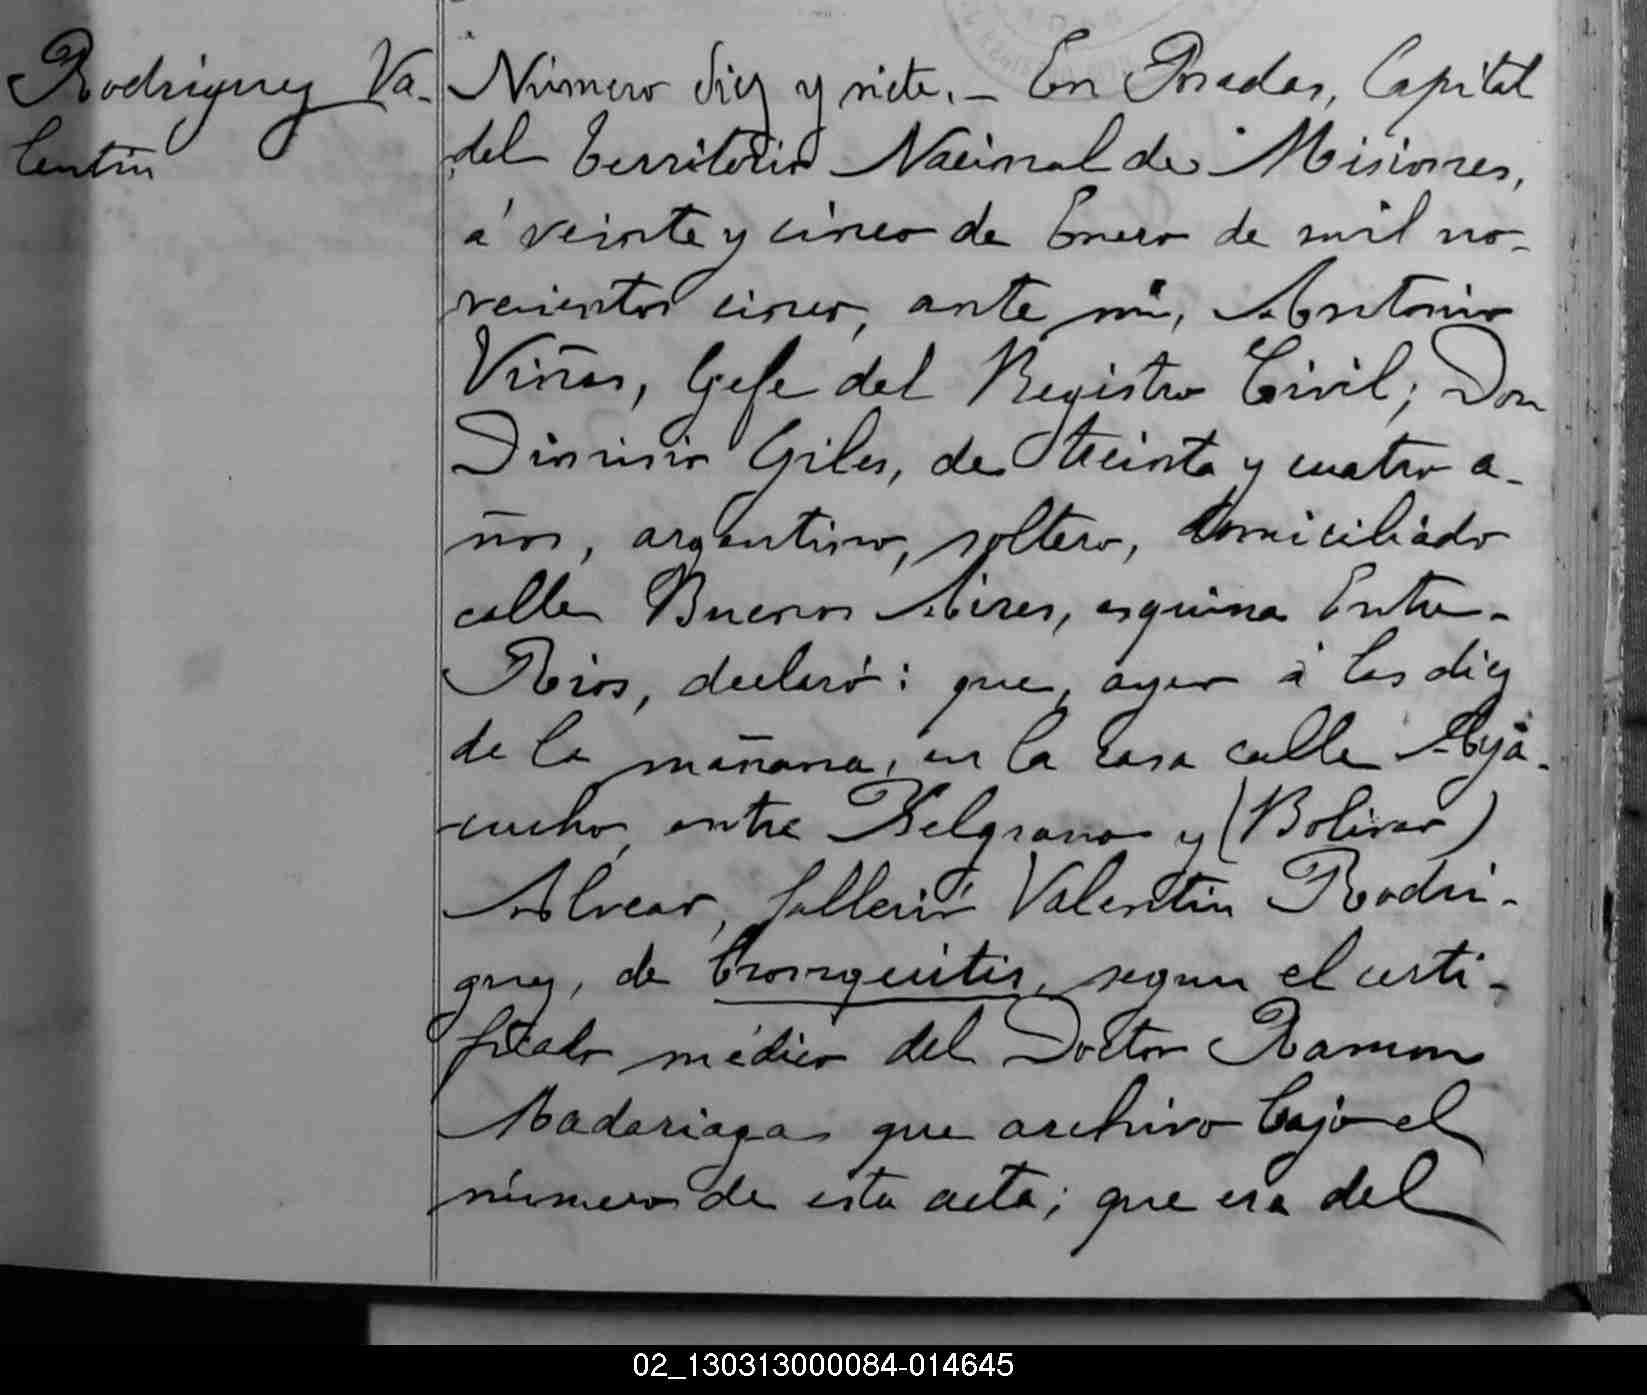 Rodriguez Va-
lentin
Número diez y siete. – En Posadas, Capital
del Territorio Nacional de Misiones,
á veinte y cinco de Enero de mil no-
vecientos cinco, ante mi, Antonio
Viñas, Gefe del Registro Civil; Don
Dionisio Giles, de treinta y cuatro a-
ños, argentino, soltero, domiciliado
calle Buenos Aires, esquina Entre-
Rios, declaró: que, ayer á las diez
de la mañana, en la casa calle Aya-
cucho, entre Belgrano y (Bolivar)
Alvear, falleció Valentin Rodri-
guez, de bronquitis, segun el certi-
ficado médico del Doctor Ramon
Madariaga que archivo bajo el
número de esta acta; que era del
02_130313000084-014645